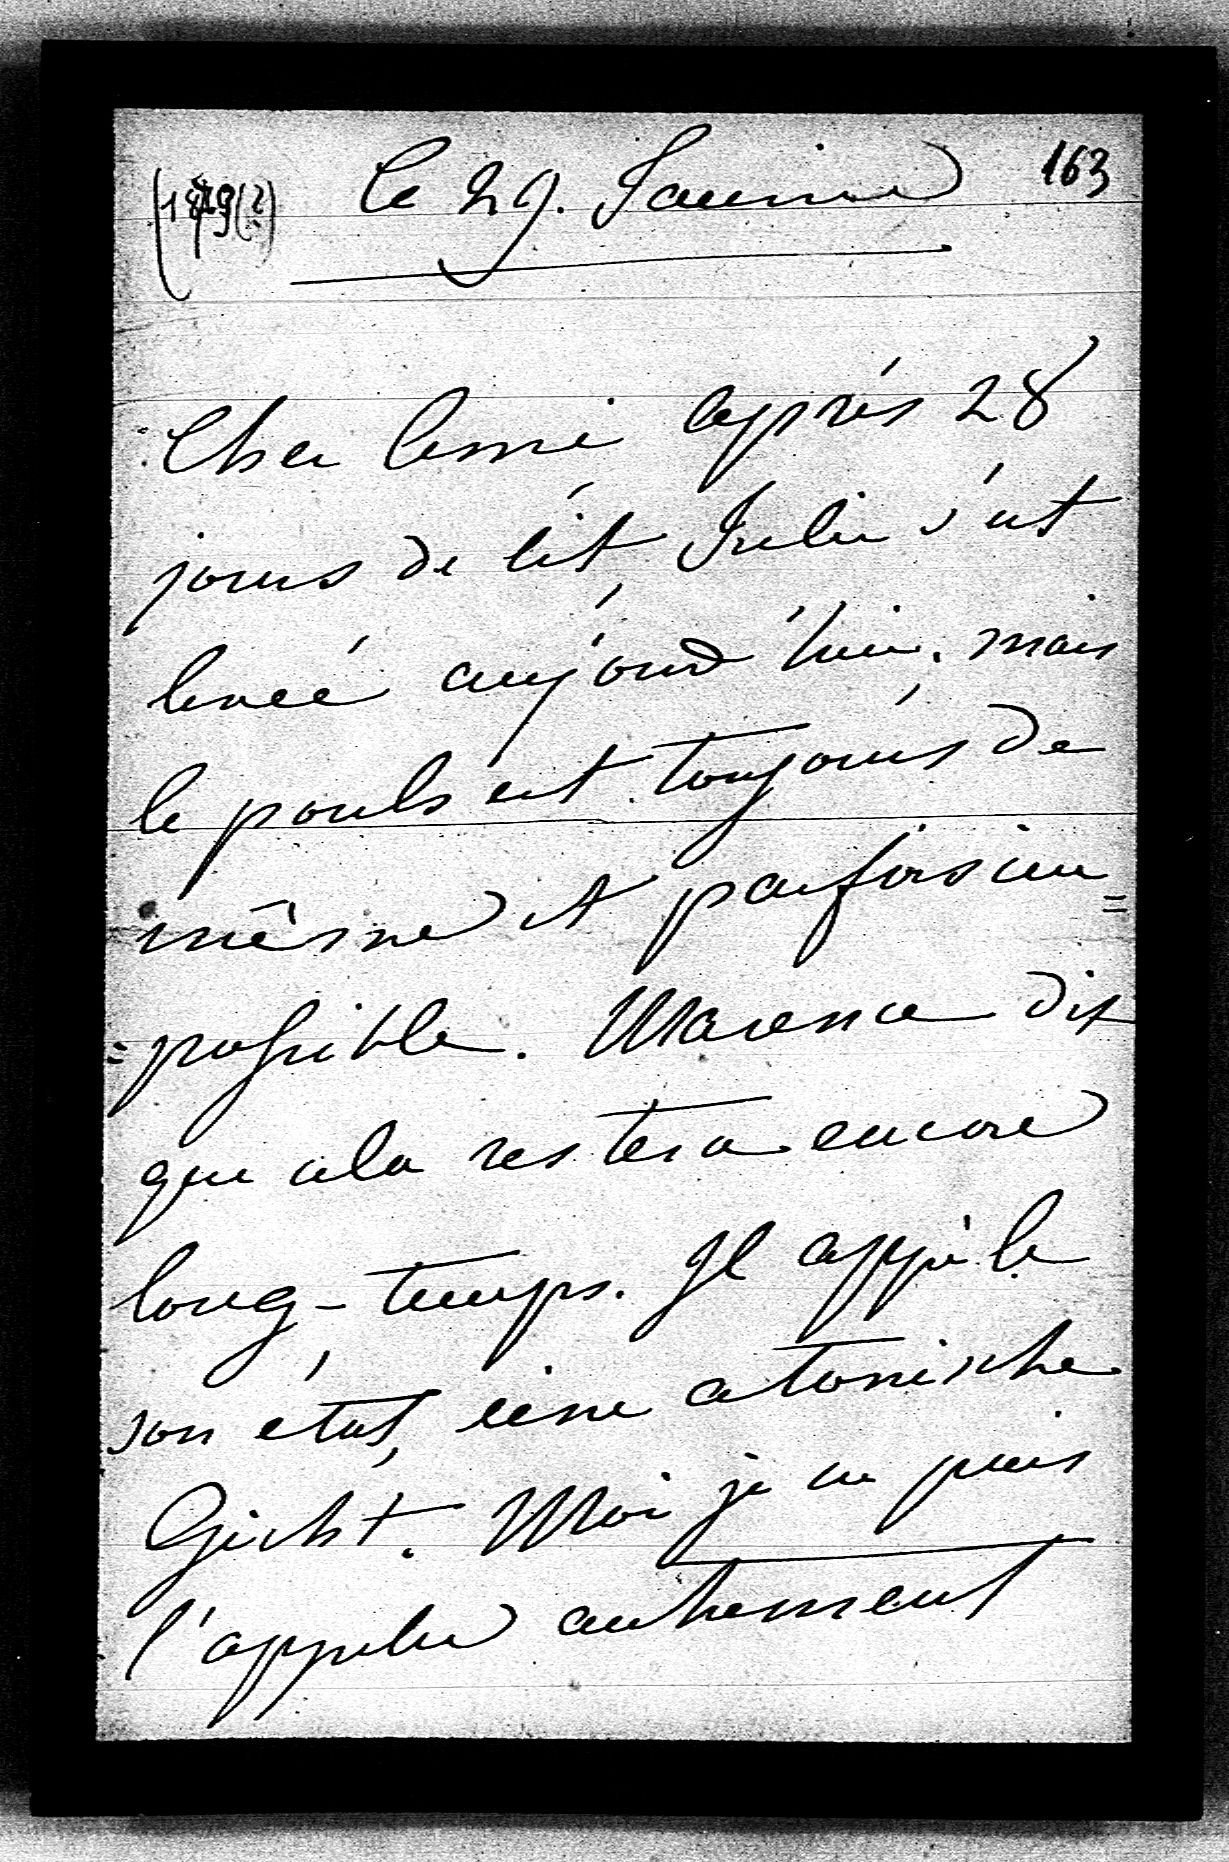 163
(1879(?)) le 29. Janvier
Cher Ami après 28
jours de lit, Julie s'est
levée aujourd'hui. mais
le pouls est toujours de
même et parfois im=
=possible. Marence dit
que cela restera encore
long-temps. Il appèle
son état, eine atonische
Gicht. Moi je ne puis
l'appeler autrement